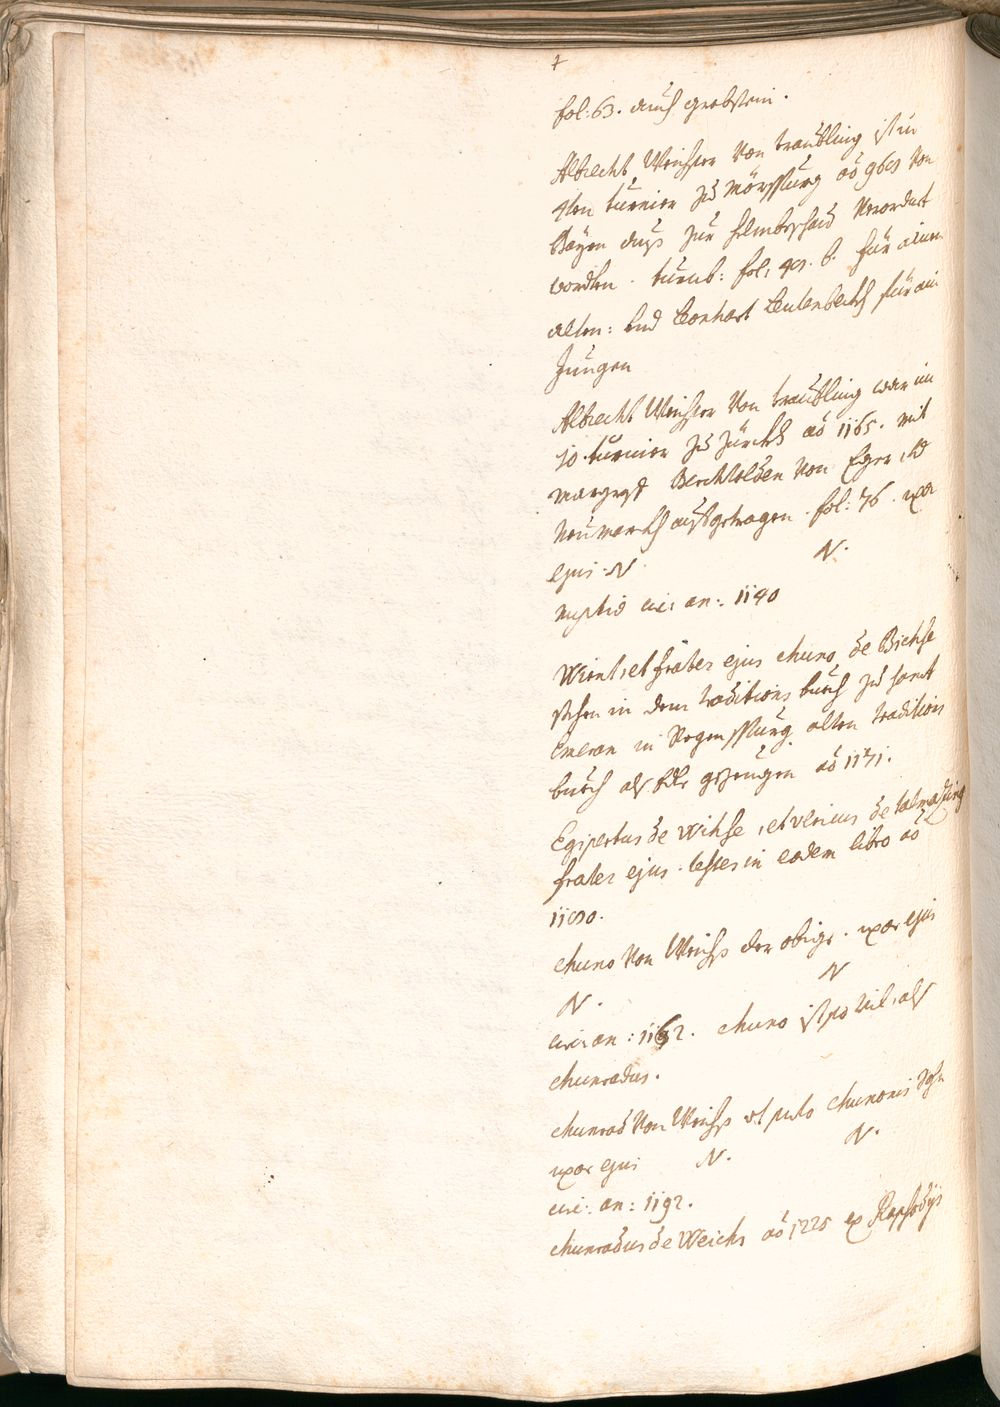 7
fol: 63. auch grabstein.
Albrecht Weichser Von traubling ist in
4ten turnier zu Mörsspurg aõ 969 Von
Bayrn auss zur helmbschau Verordnet
worden. turnb: fol: 49. b. für ainen
alten: und Leonhart Leutenbeckh für ain
Jungen
Albrecht Weichser Von traubling war im
10. turnier zu Zürckh aõ 1165. mit
marggraf Berchtolden Von Eger
Neumarckh aussgetragen. fol: 76. uxor
ejus N N.
nuptiae circ: an: 1140
Wernt, et frater ejus Chuno de Bichse
stehen in dem traditions buech zu sanct
Emeran in Regenspurg alten tradition
buech als gezeugen aõ 1171.
Egipertus de Wihse, et de talmassing
frater ejus. testes in eodem libro aõ
1180.
Chuno Von Weichs der obige. uxor ejus
N. N
circ: an: 1162. Chuno ist so vil, als
Chunradus.
Chunrad Von Weichs ut puto Chunonis Sohn
uxor ejus N. N.
circ: an: 1192.
Chunradus de Weichs aõ 1225 ex Rapsodijs